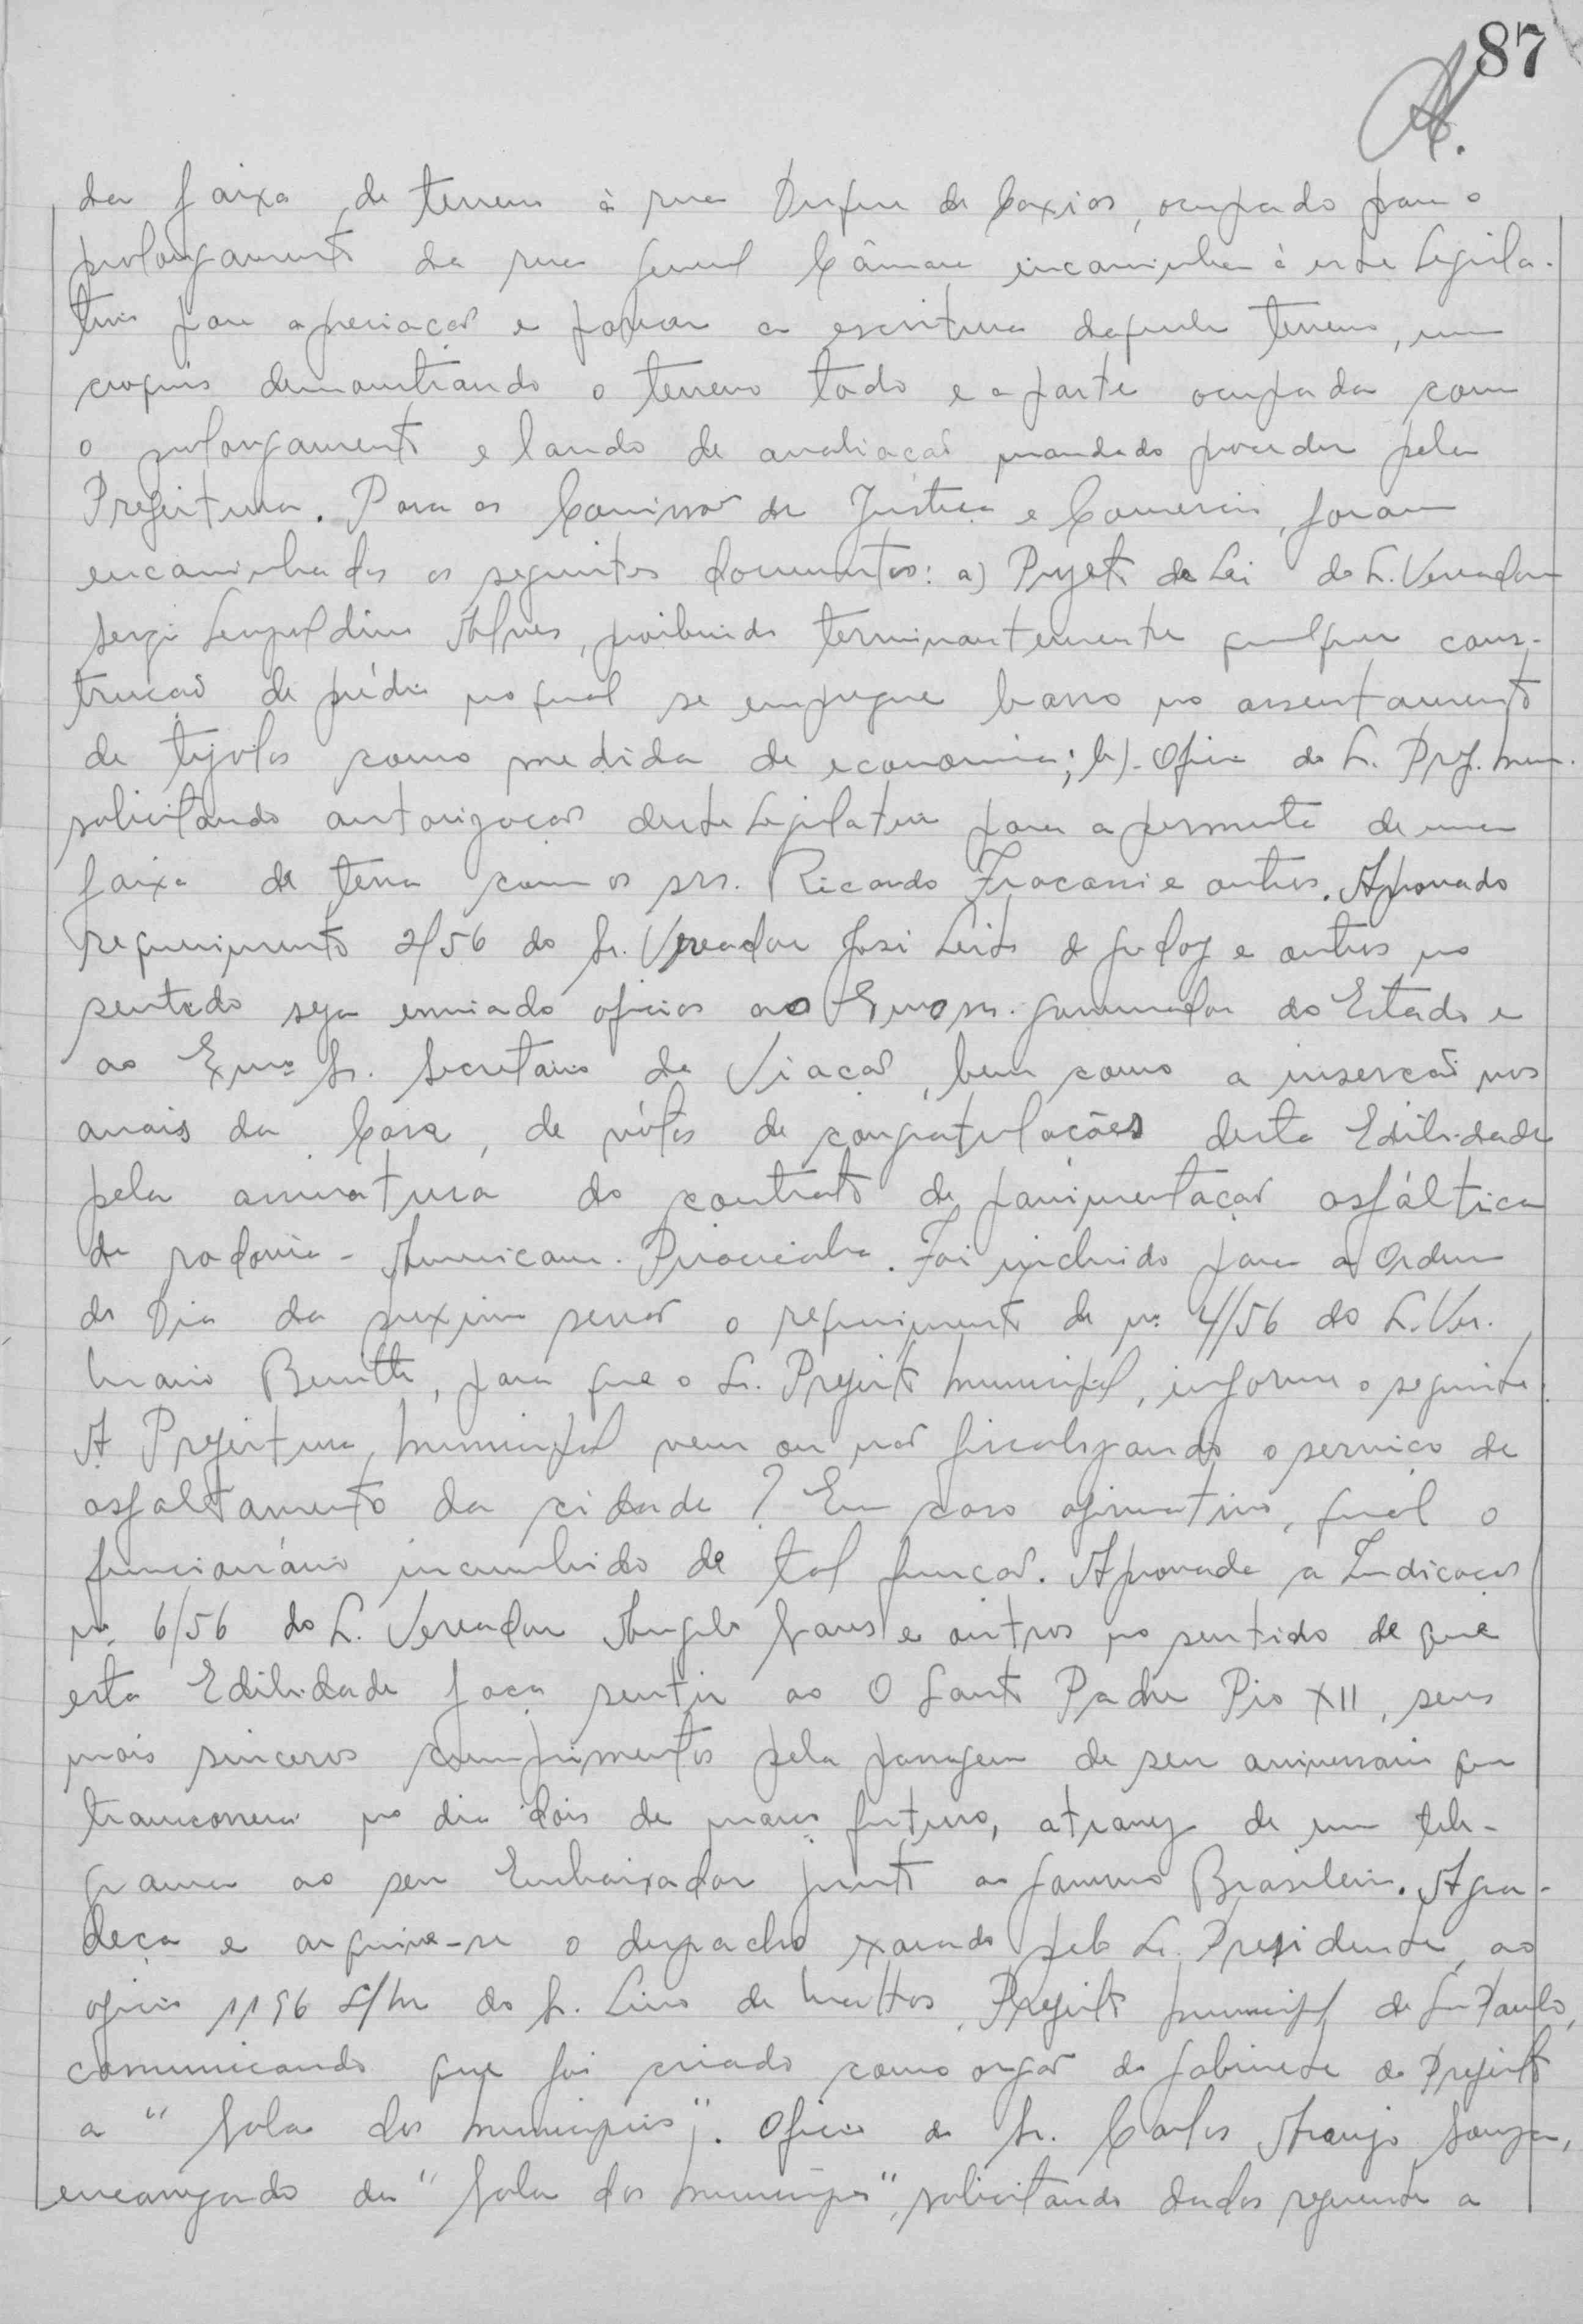 87
da faixa de terreno à rua Duque de Caxias, ocupado para o
prolongamento da rua General Câmara encaminha à este Legisla-
tivo para apreciação e passar a escritura daquele terreno, um
croquis demonstrando o terreno todo e a parte ocupada com
o prolongamento e laudo de avaliação mandado proceder pela
Prefeitura. Para as Comissões de Justiça e Comercio, foram
encaminhados os seguintes documentos: a) Projeto de Lei do Sr. Vereador
Sergio Leopoldino Alves, proibindo terminantemente qualquer cons-
trução de prédio no qual se empregue barro no assentamento
de tijolos como medida de economia; b)- Oficio do Sr. Pref. Mun.
solicitando autorização deste Legislativo para a permuta de uma
faixa de terra com os srs. Ricardo Fracassi e outros. Aprovado
requerimento 2/56 do Sr. Vereador José Leite de Godoy e outros no
sentido seja enviado oficios ao Exmo sr. Governador do Estado e
ao Exmo Sr. Secretario da Viação, bem como a inserção nos
anais da Casa, de vótos de congratulações desta Edilidade
pela assinatura do contrato de pavimentação asfáltica
da rodovia - Americana - Piracicaba. Foi incluido para a Ordem
do Dia da proxima sessão o requerimento de nº 4/56 do Sr. Ver.
Mario para que o Sr. Prefeito Municipal, informe o seguinte:
A Prefeitura Municipal vem ou não fiscalizando o serviço de
asfaltamento da cidade? Em caso afirmativo, qual o
funcionário incumbido de tal função. Aprovada a Indicação
nº 6/56 do Sr. Vereador Angelo e outros no sentido de que
esta Edilidade faça sentir ao O Santo Padre Pio XII, seus
mais sinceros cumprimentos pela passagem de seu aniversario que
transcorrerá no dia dois de março futuro, atravez de um tele-
grama ao seu Embaixador junto ao Governo Brasileiro. Agra-
deça e arquive-se o despacho exarado pelo Sr. Presidente, ao
oficio 1196 do Sr. Lino de Mattos, Prefeito Municipal de São Paulo,
comunicando que foi criado como orgão do Gabinete do Prefeito
a "Sala dos Municipios". Oficio do Sr. Carlos Araujo Souza,
encarregado da "Sala dos Municipios", solicitando dados referente a